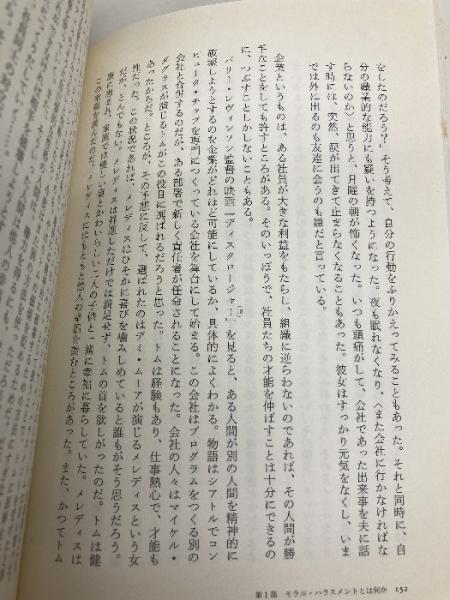 をしたのだろう？ そう考えて、自分の行動をふりかえってみることもあった。それと同時に、自
分の職業的な能力にも疑いを持つようになった。夜も眠れなくなり、〈また会社に行かなければな
らないのか〉と思うと、月曜の朝が怖くなった。いつも頭痛がして、会社であった出来事を夫に話
す時には、突然、涙が出てきて止まらなくなることもあった。彼女はすっかり元気をなくし、いま
では外に出るのも友達に会うのも嫌だと言っている。
企業というものは、ある社員が大きな利益をもたらし、組織に逆らわないのであれば、その人間が勝
手なことをしても許すところがある。そのいっぽうで、社員たちの才能を伸ばすことは十分にできるの
に、つぶすことしかしないこともある。
バリー・レヴィンソン監督の映画『ディスクロージャー』を見ると、ある人間が別の人間を精神的に
破滅しようとするのを企業がどれほど可能にしているか、具体的によくわかる。物語はシアトルでコン
ピュータ・チップを専門につくっている会社を舞台にして始まる。この会社はプログラムをつくる別の
会社と合併するのだが、ある部署で新しく責任者が任命されることになった。会社の人々はマイケル・
ダグラスが演じるトムがこの役目に選ばれるだろうと思った。トムは経験もあり、仕事熱心で、才能も
あったからだ。ところが、その予想に反して、選ばれたのはデミ・ムーアが演じるメレディスという女
性だった。この状況であれば、メレディスはひそかに喜びを噛みしめていると誰もがそう思うだろう。
だが、とんでもない。メレディスは昇進しただけでは満足せず、トムの首を欲しがったのだ。トムは健
康に恵まれ、家庭では優しい妻とかわいらしい二人の子供と一緒に幸福に暮らしていた。メレディスは
この幸福を羨んだのだ。メレディスにはもともと他人の幸福を羨むところがあった。また、かつてトム
第1部 モラル・ハラスメントとは何か 152